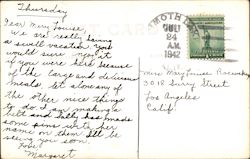 Thursday
Dear Mary Louise,
We are really having
a swell vacation. You
would sure enjoy it
if you were here because
of the large and delicious
meals, let alone any of
the other nice things
to do. I am making a
belt and Sally has made
some pins with her
name on them. I'll be
seeing you soon.
Love,
Margaret
CARD
JUL
24
AM
1942
Miss Mary Louise
3018 Street
Los Angeles
Calif.